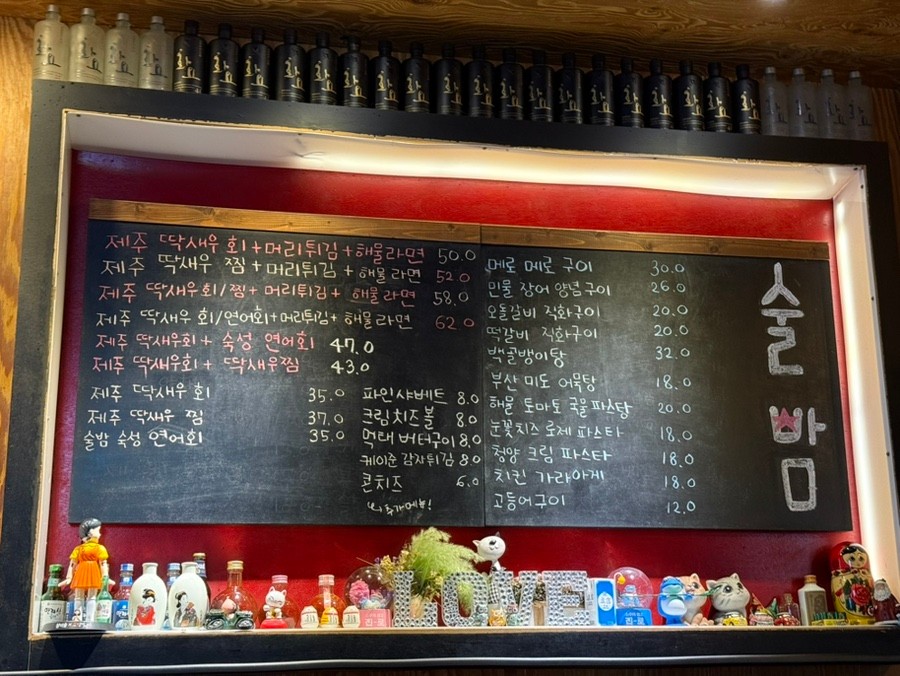 제주 딱새우 회+머리튀김+해물라면 50.0
제주 딱새우 찜+머리튀김+해물라면 52.0
제주 딱새우회/찜+머리튀김+해물라면 58.0
제주 딱새우 회/연어회+머리튀김+해물라면 62.0
제주 딱새우회+숙성 연어회 47.0
제주 딱새우회+딱새우찜 43.0
제주 딱새우 회 35.0
제주 딱새우 찜 37.0
술밤 숙성 연어회 35.0
파인샤베트 8.0
크림치즈볼 8.0
먹태 버터구이 8.0
케이준 감자튀김 8.0
콘치즈 6.0
추가메뉴!
메로 메로 구이 30.0
민물 장어 양념구이 26.0
오돌갈비 직화구이 20.0
떡갈비 직화구이 20.0
백골뱅이탕 32.0
부산 미도 어묵탕 18.0
해물 토마토 국물 파스탕 20.0
눈꽃치즈 로제 파스타 18.0
청양 크림 파스타 18.0
치킨 가라아게 18.0
고등어구이 12.0
술밤
화요
LOVE